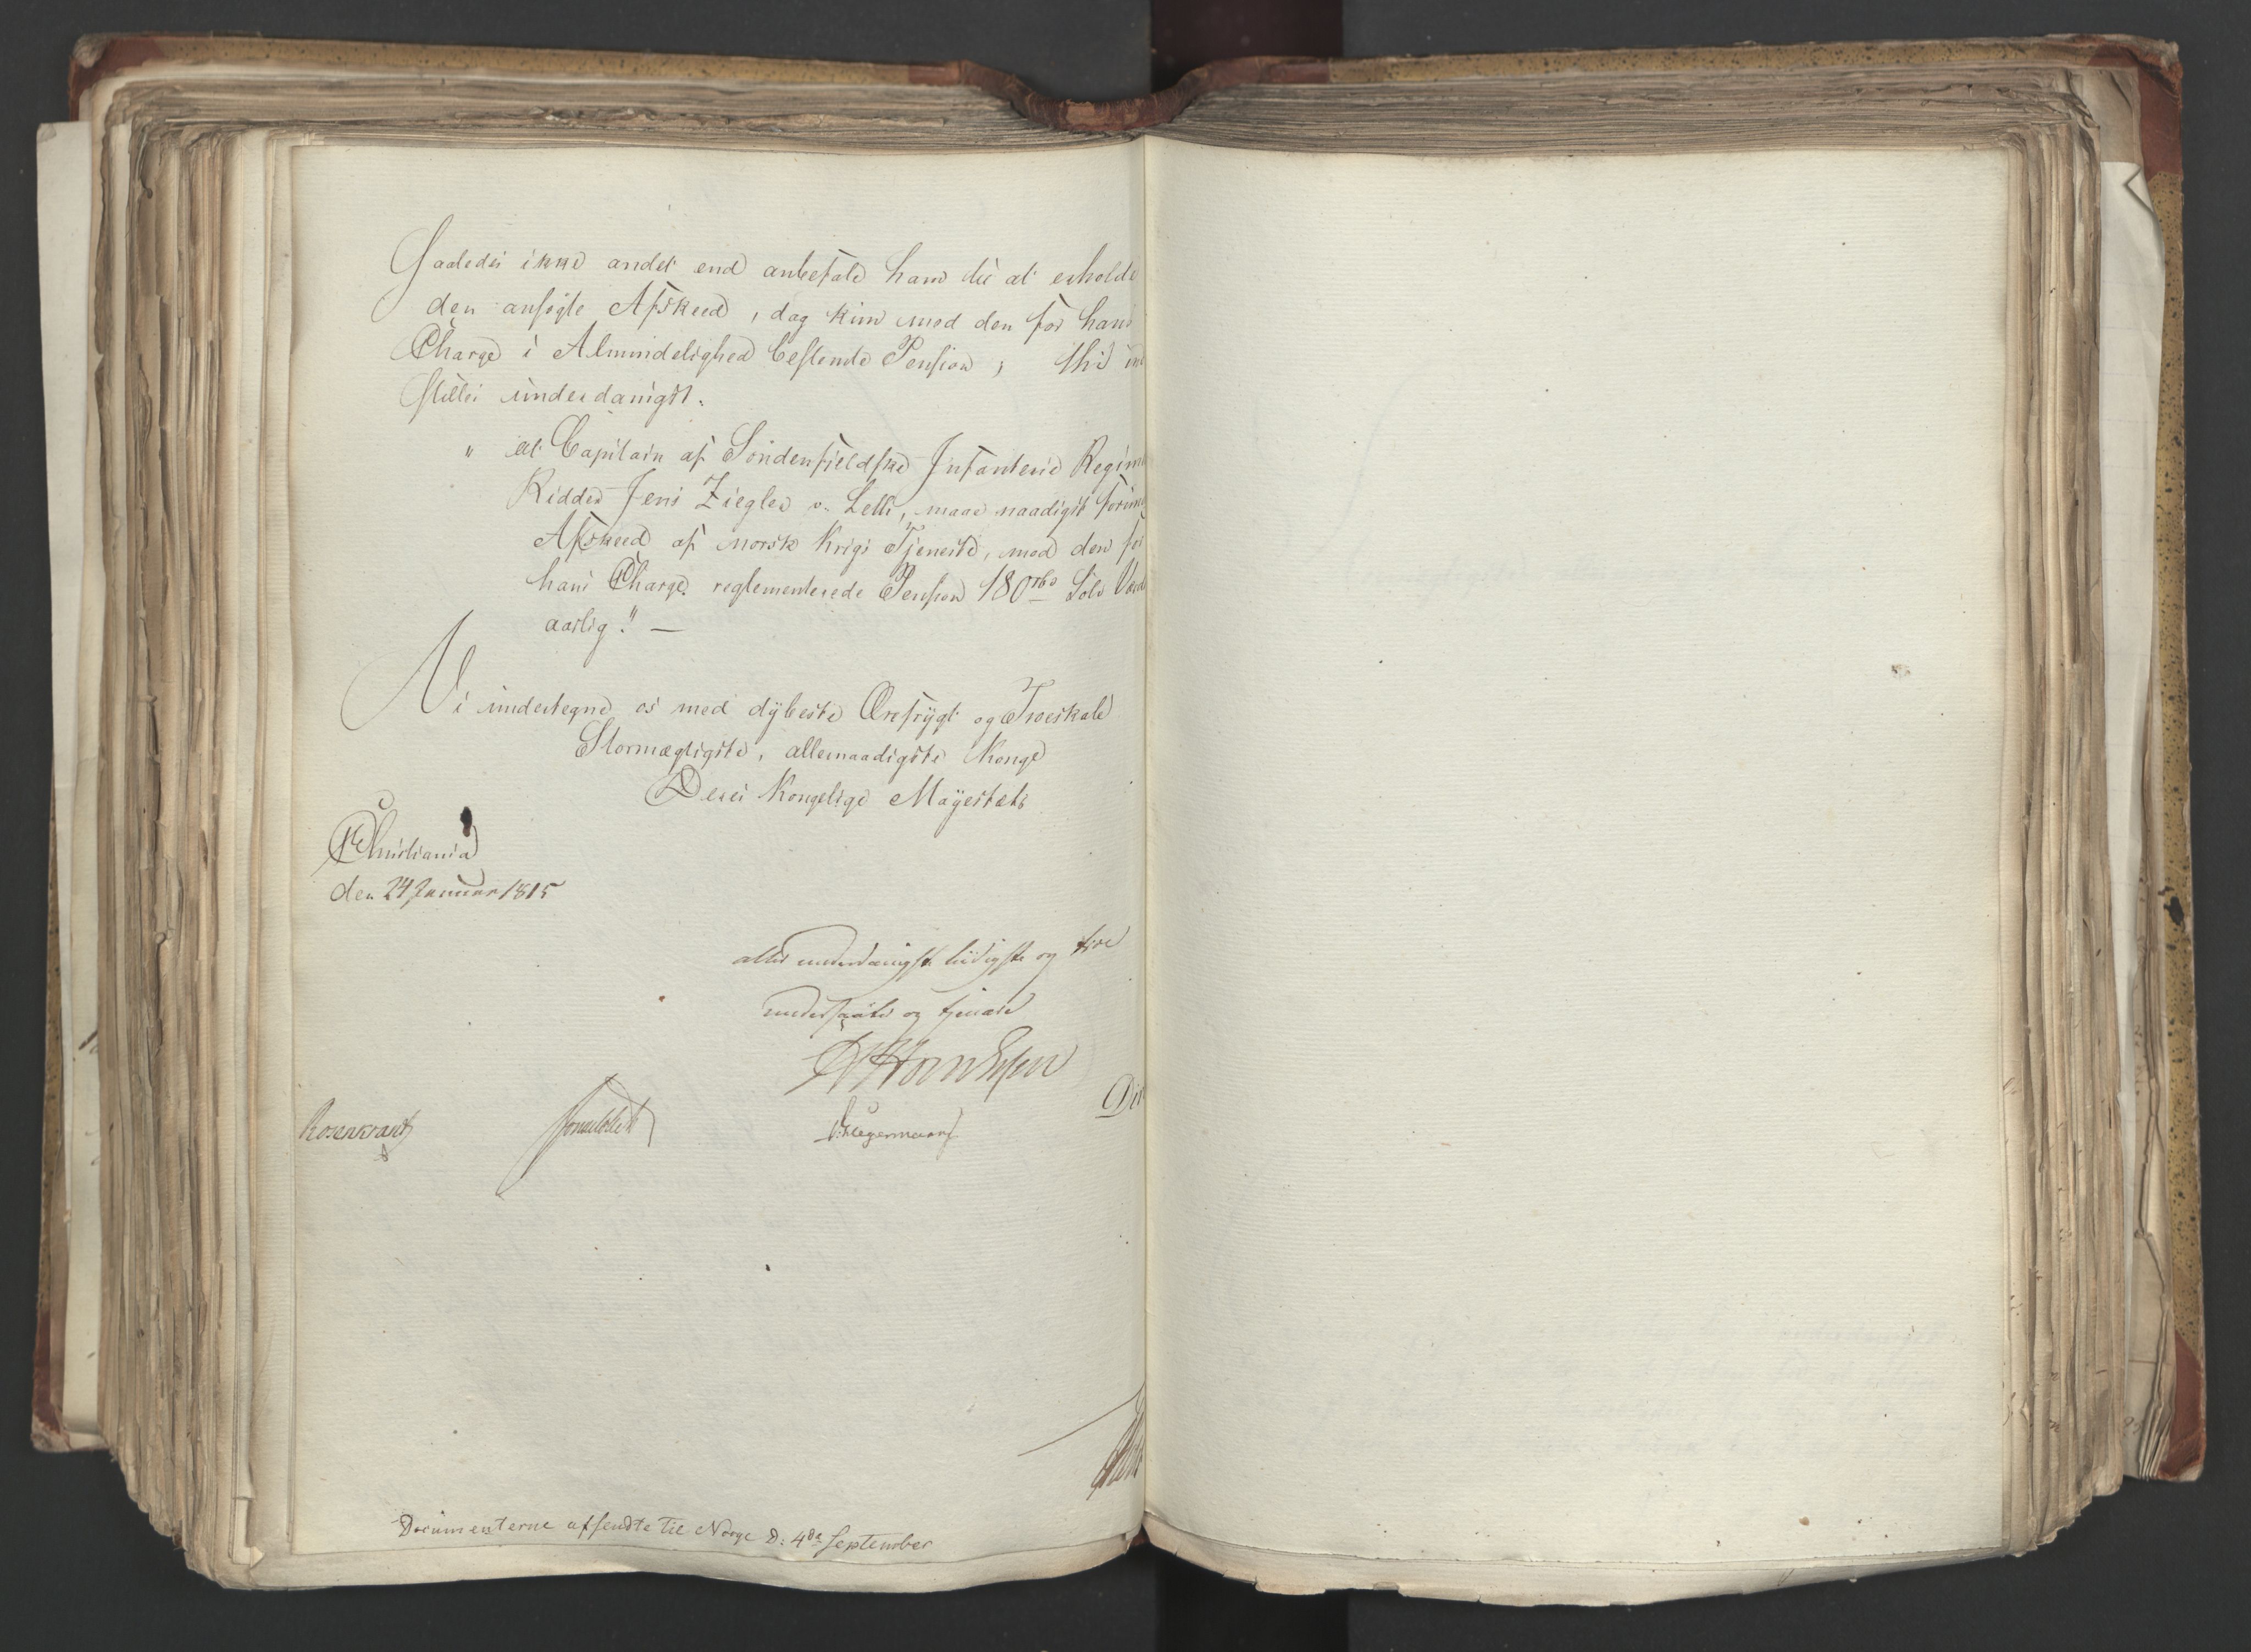 Saaledes ikke andet end anbefale ham til at erholde
den ansøgte Afskeed, dog kun mod den for hans
Charge i Almindelighed bestemte Pension; thi ind
stilles underdanigst:
" at Capitain af Søndenfieldske Infanterie Regim
Ridder Jens Ziegler v. , maae naadigst forun
Afskeed af norsk Krigs Tjeneste, mod den for
hans Charge reglementerede Pension 180 rbd Sølv Værd
aarlig." —
Vi undertegne os med dybeste Ærefrygt og Troeskab
Stormægtigste, allernaadigste Konge
Deres Kongelige Mayestæts
Christiania
den 24 Januar 1815
allerunderdanigste lydigste og troe
undersaatter og tjenere
Rosenkrantz Sommerfeldt Diegermann
Documenterne afsendte til Norge D: 4de September